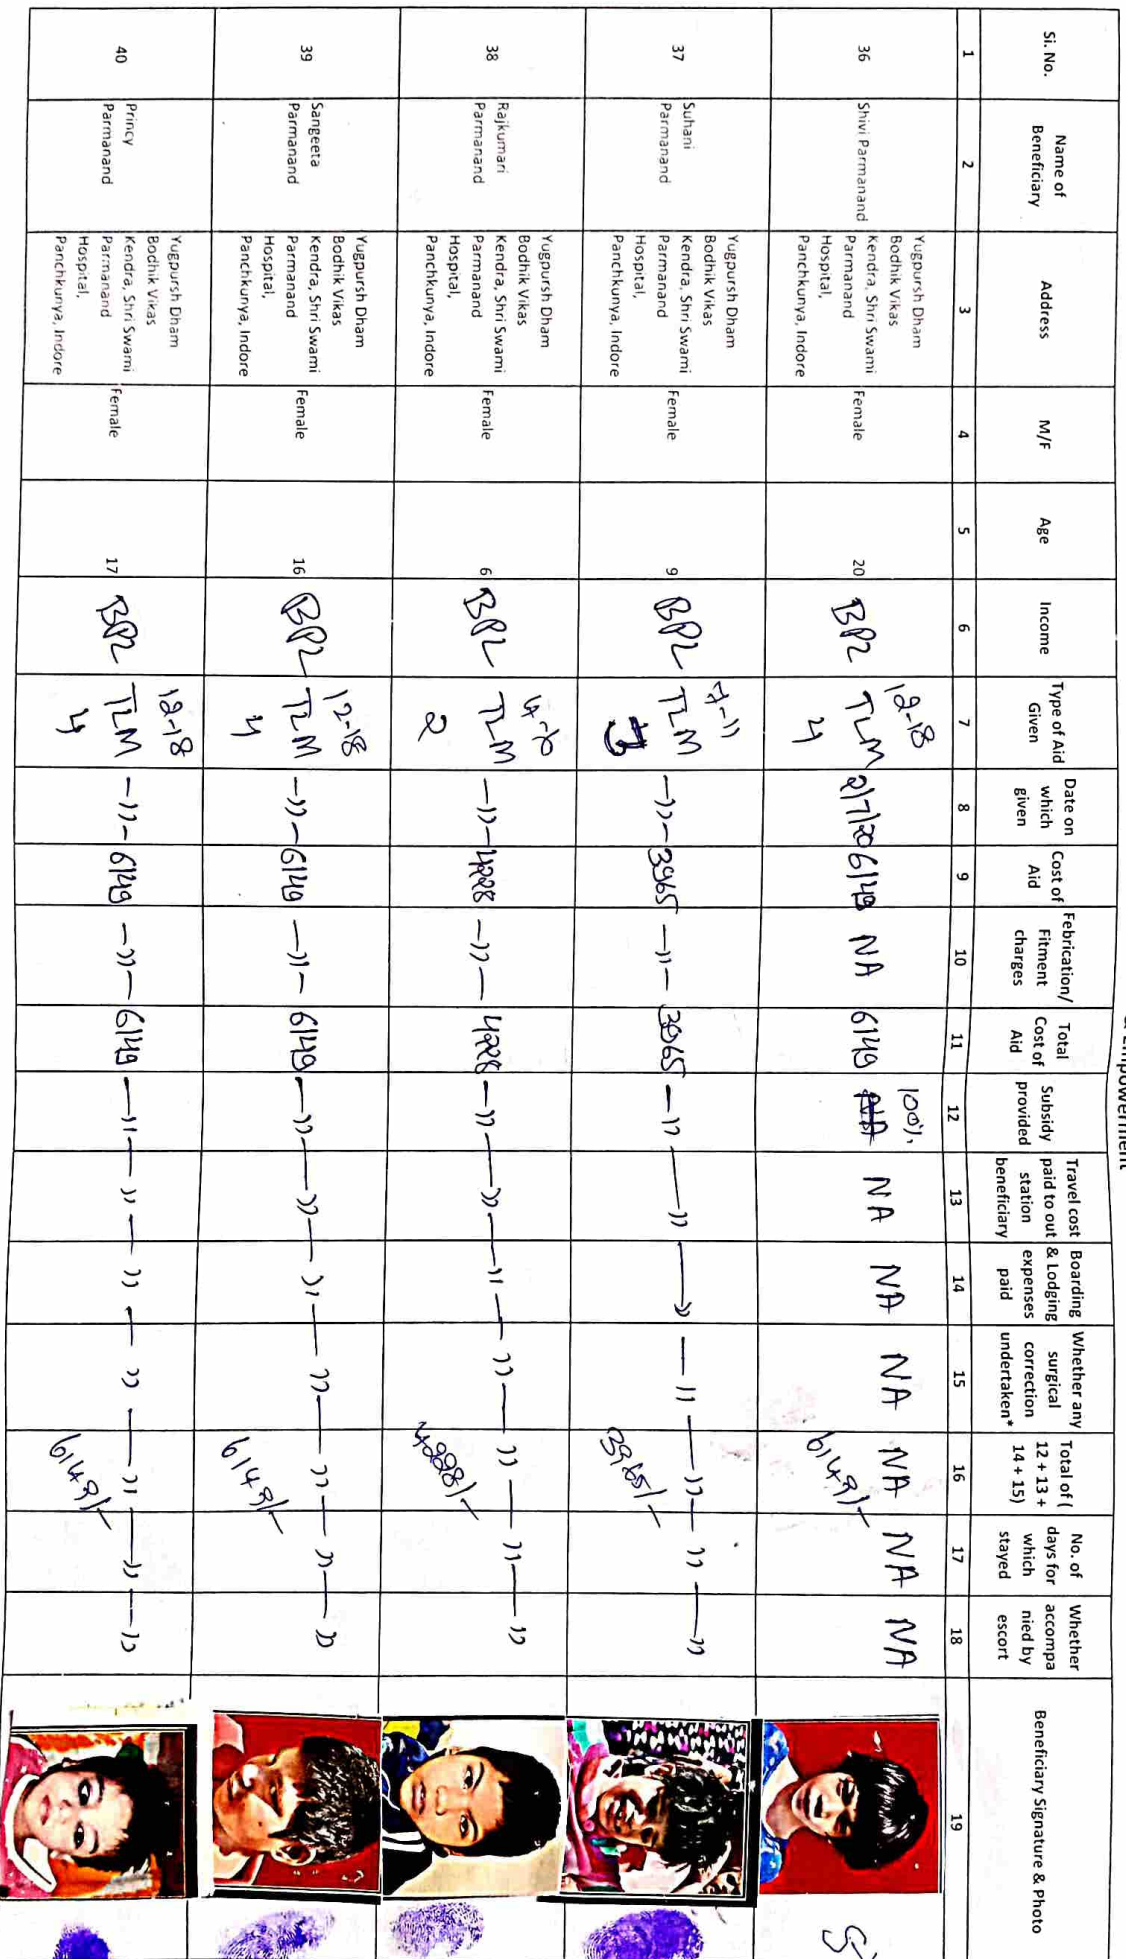 & Empowerment
Si. No.
Name of
Beneficiary
Address
M/F
Age
Income
Type of Aid
Given
Date on
which
given
Cost of
Aid
Febrication/
Fitment
charges
Total
Cost of
Aid
Subsidy
provided
Travel cost
paid to out
station
beneficiary
Boarding
& Lodging
expenses
paid
Whether any
surgical
correction
undertaken*
Total of (
12 + 13 +
14 + 15)
No. of
days for
which
stayed
Whether
accompa
nied by
escort
Beneficiary Signature & Photo
1 2 3 4 5 6 7 8 9 10 11 12 13 14 15 16 17 18 19
36
Shivi Parmanand
Yugpursh Dham
Bodhik Vikas
Kendra, Shri Swami
Parmanand
Hospital,
Panchkunya, Indore
Female
20
BPL
12-18
TLM
4
2/7/20
6149
NA
6149
100%
NA
NA
NA
NA
NA
6149/-
NA
NA
37
Suhani
Parmanand
Yugpursh Dham
Bodhik Vikas
Kendra, Shri Swami
Parmanand
Hospital,
Panchkunya, Indore
Female
9
BPL
7-11
TLM
3
—〃—
3965
—〃—
3965
—〃—〃—〃—〃—〃—〃—〃
3965/-
38
Rajkumari
Parmanand
Yugpursh Dham
Bodhik Vikas
Kendra, Shri Swami
Parmanand
Hospital,
Panchkunya, Indore
Female
6
BPL
TLM
2
—〃—
4228
—〃—
4228
—〃—〃—〃—〃—〃—〃—〃
4228/-
39
Sangeeta
Parmanand
Yugpursh Dham
Bodhik Vikas
Kendra, Shri Swami
Parmanand
Hospital,
Panchkunya, Indore
Female
16
BPL
12-18
TLM
4
—〃—
6149
—〃—
6149
—〃—〃—〃—〃—〃—〃—〃
6149/-
40
Princy
Parmanand
Yugpursh Dham
Bodhik Vikas
Kendra, Shri Swami
Parmanand
Hospital,
Panchkunya, Indore
Female
17
BPL
12-18
TLM
4
—〃—
6149
—〃—
6149
—〃—〃—〃—〃—〃—〃—〃
6149/-